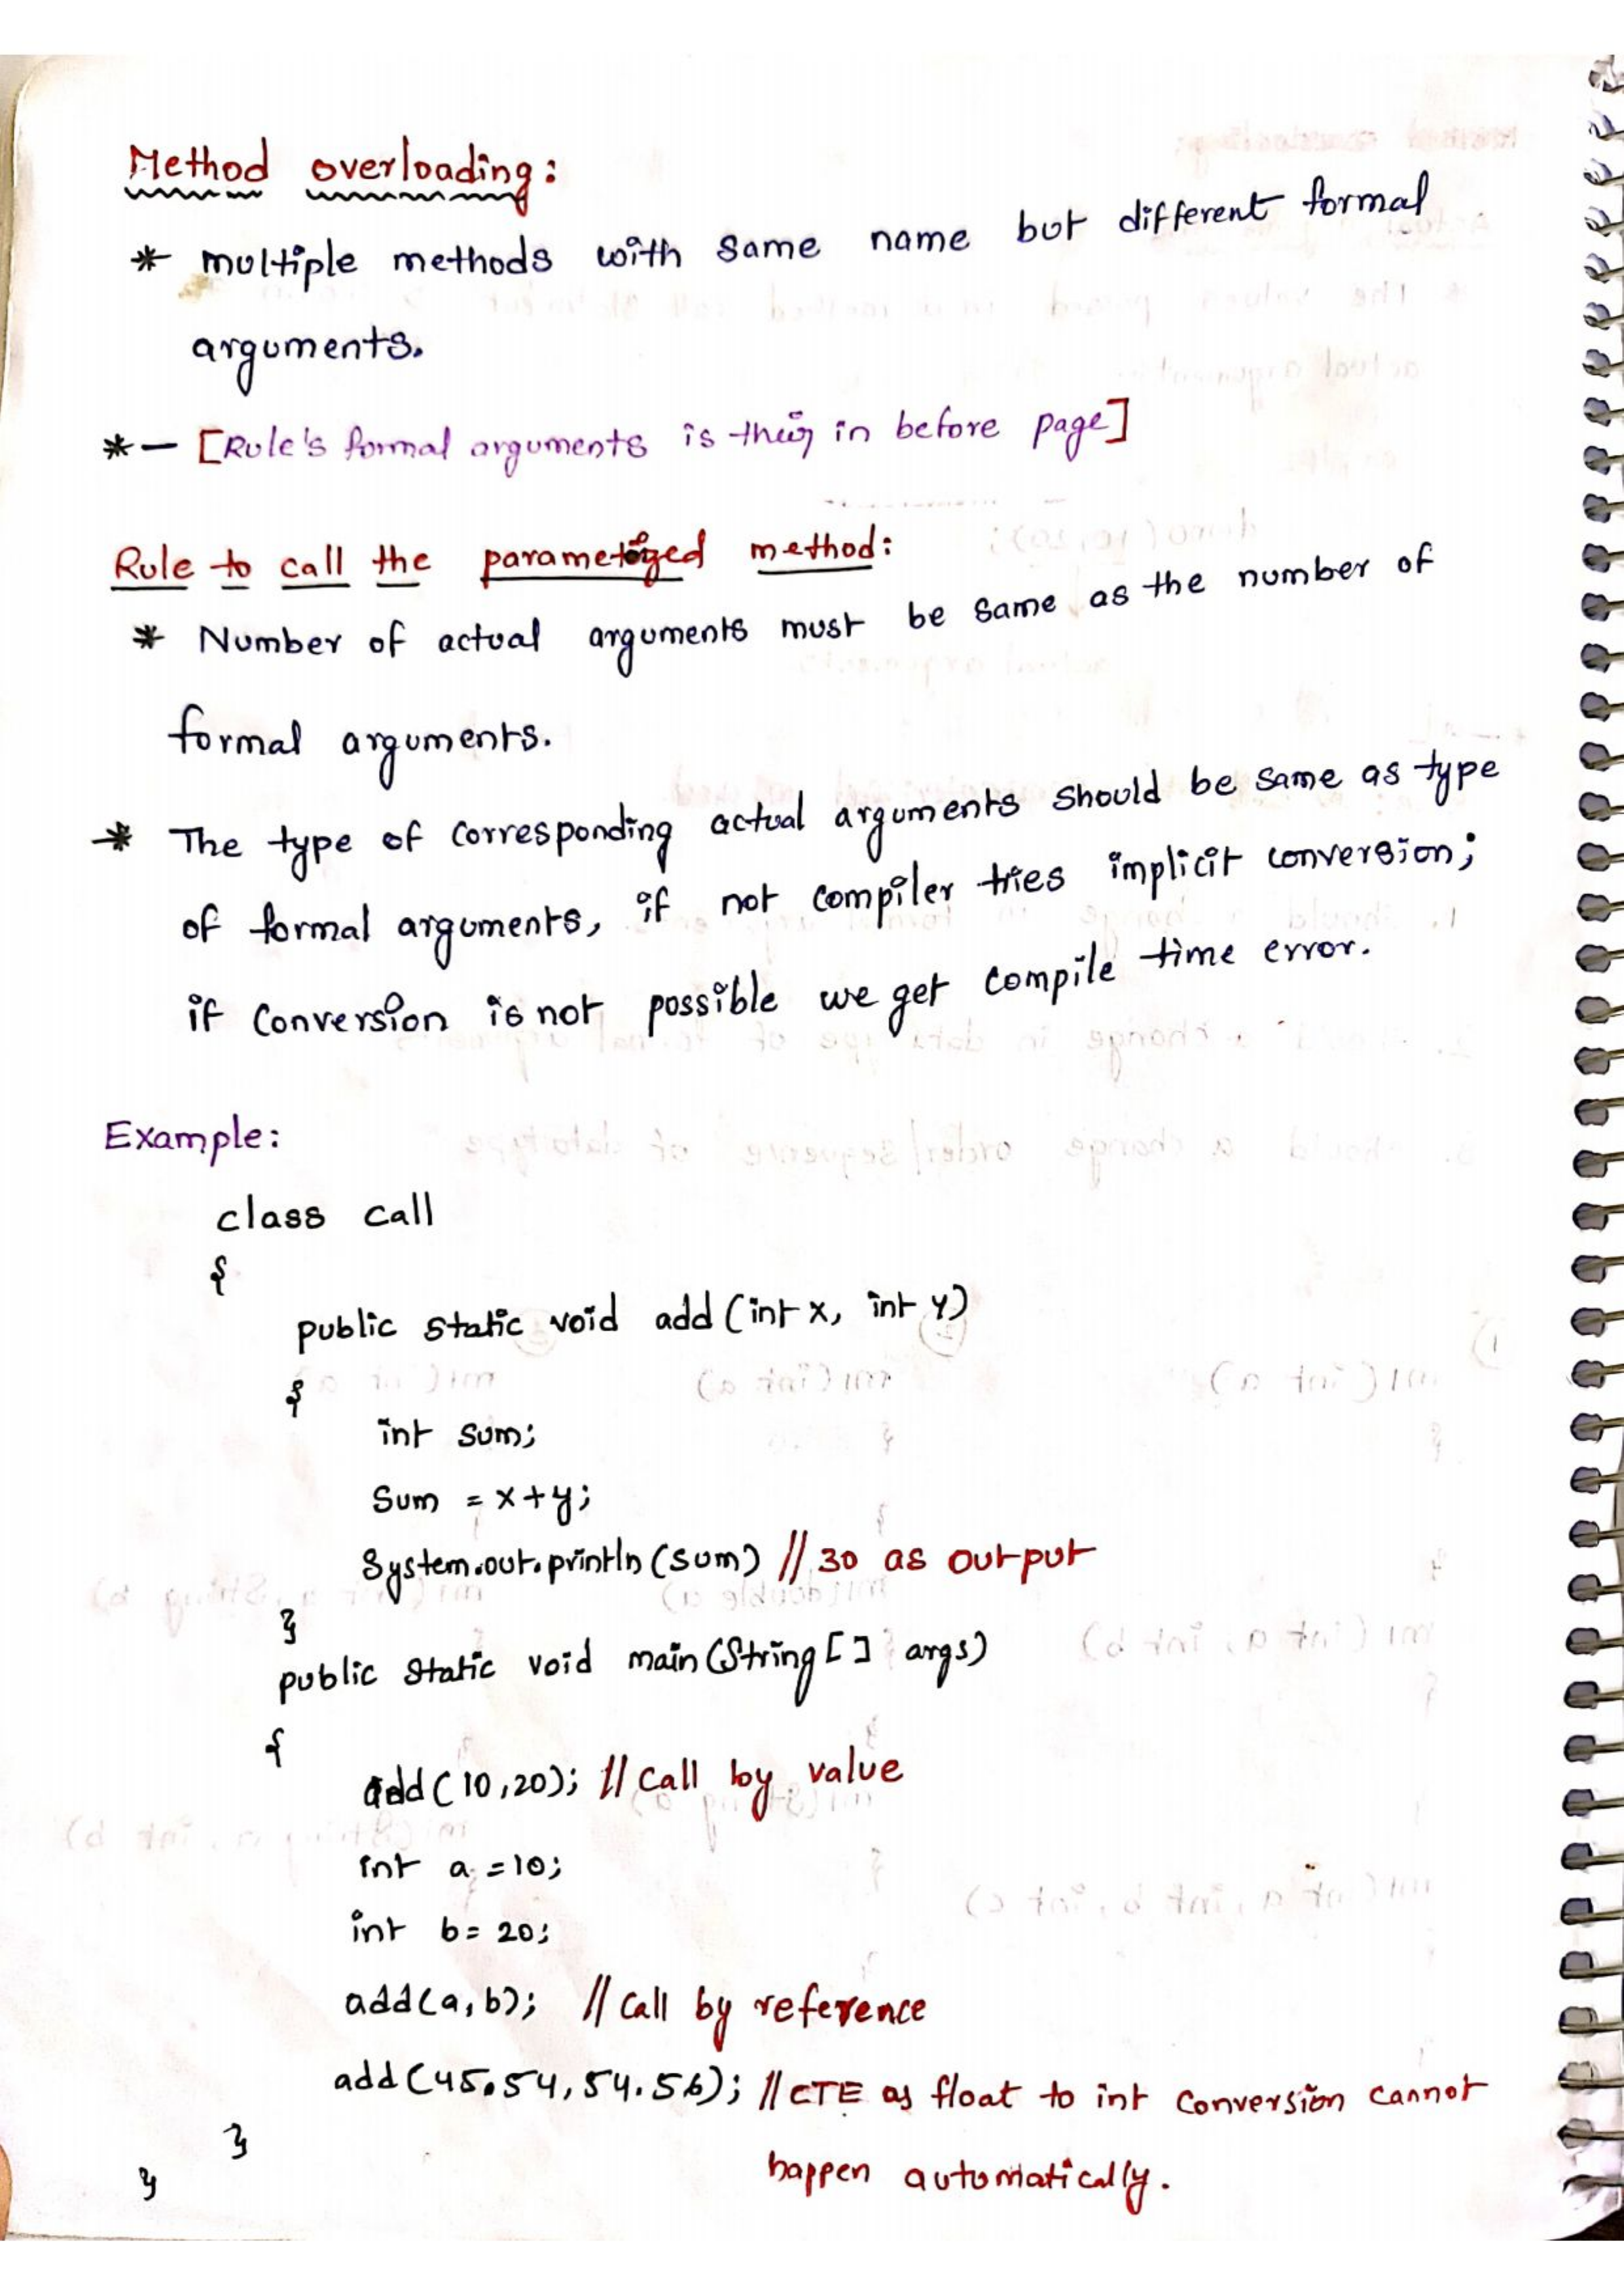 Method overloading:
* multiple methods with same name but different formal
arguments.
*— [Rule's formal arguments is their in before page]
Rule to call the parameterized method:
* Number of actual arguments must be same as the number of
formal arguments.
* The type of corresponding actual arguments should be same as type
of formal arguments, if not compiler tries implicit conversion;
if conversion is not possible we get compile time error.
Example:
class call
{
public static void add (int x, int y)
{
int sum;
Sum = x+y;
System.out.println (sum) // 30 as output
}
public static void main (String [] args)
{
add (10,20); // Call by value
int a =10;
int b= 20;
add(a, b); // Call by reference
add (45.54, 54.56); // CTE as float to int conversion cannot
happen automatically.
}
}